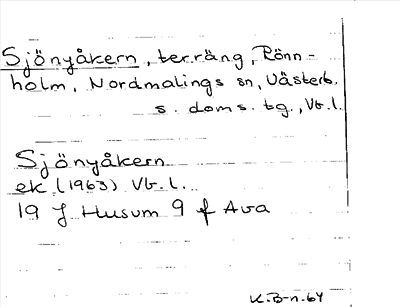 Sjönyåkern, terräng, Rönn-
holm, Nordmalings sn, Västerb.
s. doms. tg., Vb. l.
Sjönyåkern
ek. (1963) Vb. l.
19 J Husum 9 f Ava
K.B-n. 64